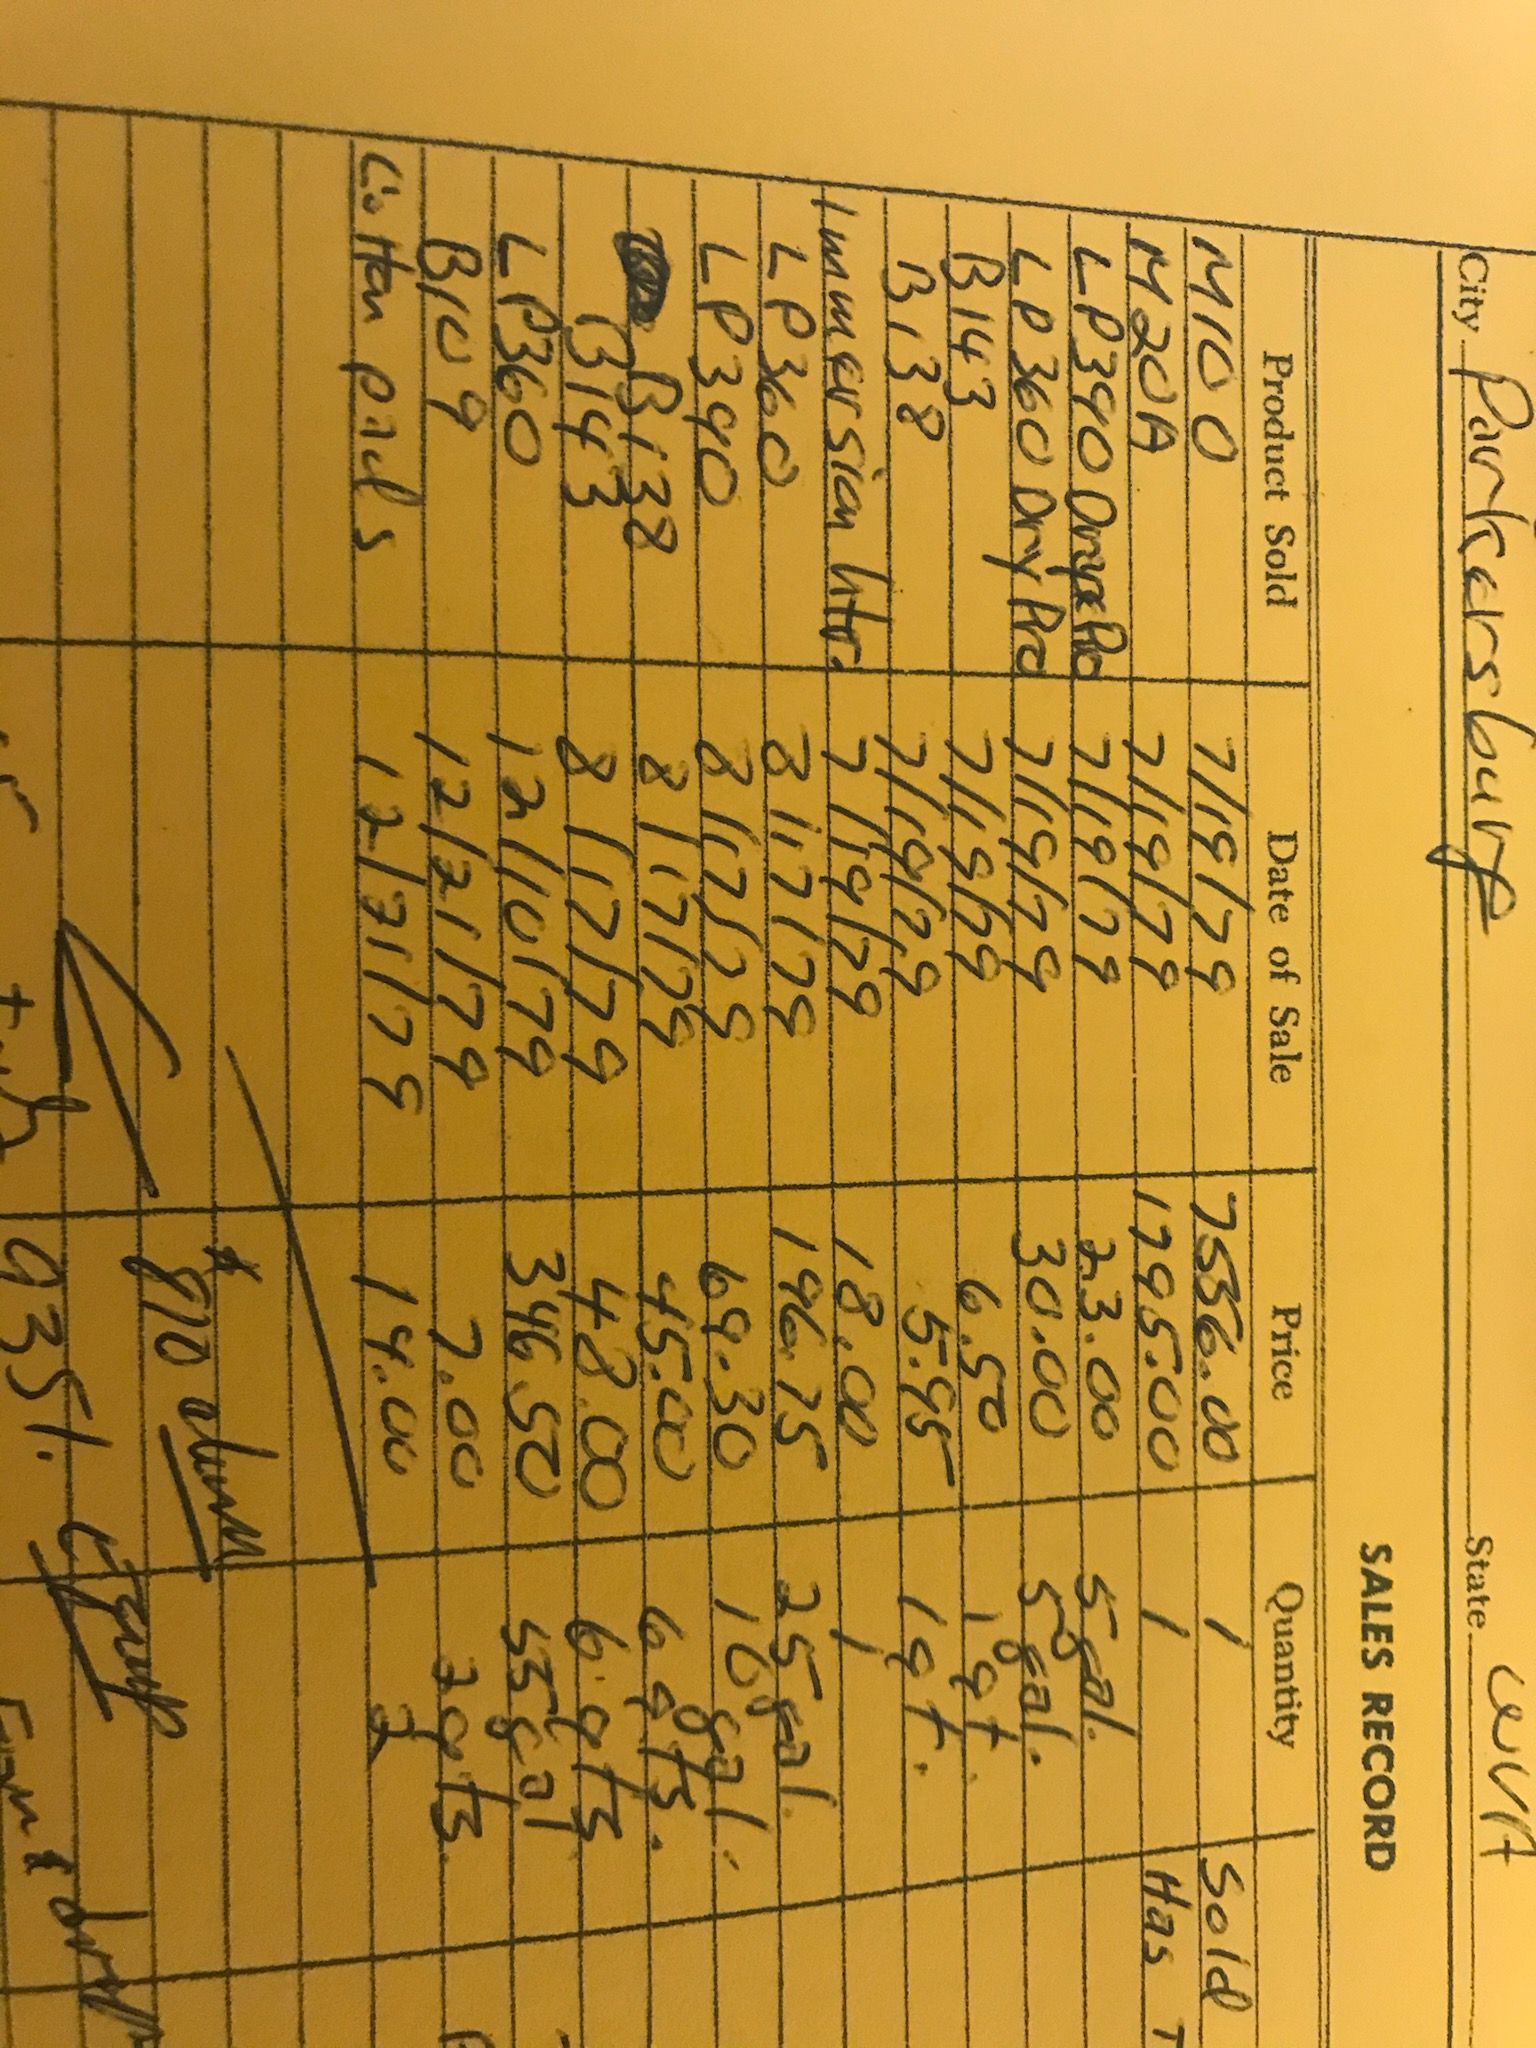 City Parkersburg State WVA
SALES RECORD
Product Sold Date of Sale Price Quantity
M100 7/19/79 7536.00 1 Sold
M20A 7/19/79 1795.00 1 Has
LP340 7/19/79 23.00 5 gal.
LP360 Dry 7/19/79 30.00 5 gal.
B143 7/19/79 6.50 1 qt.
B138 7/19/79 5.95 1 qt.
Immersion htr. 7/19/79 18.00 1
LP360 8/17/79 196.75 25 gal.
LP340 8/17/79 69.30 10 gal.
B138 8/17/79 45.00 6 qts.
B143 8/17/79 48.00 6 qts
LP360 12/10/79 346.50 55 gal
B109 12/21/79 7.00 2 qts.
Cotton pads 12/21/79 14.00 2
$810 drum